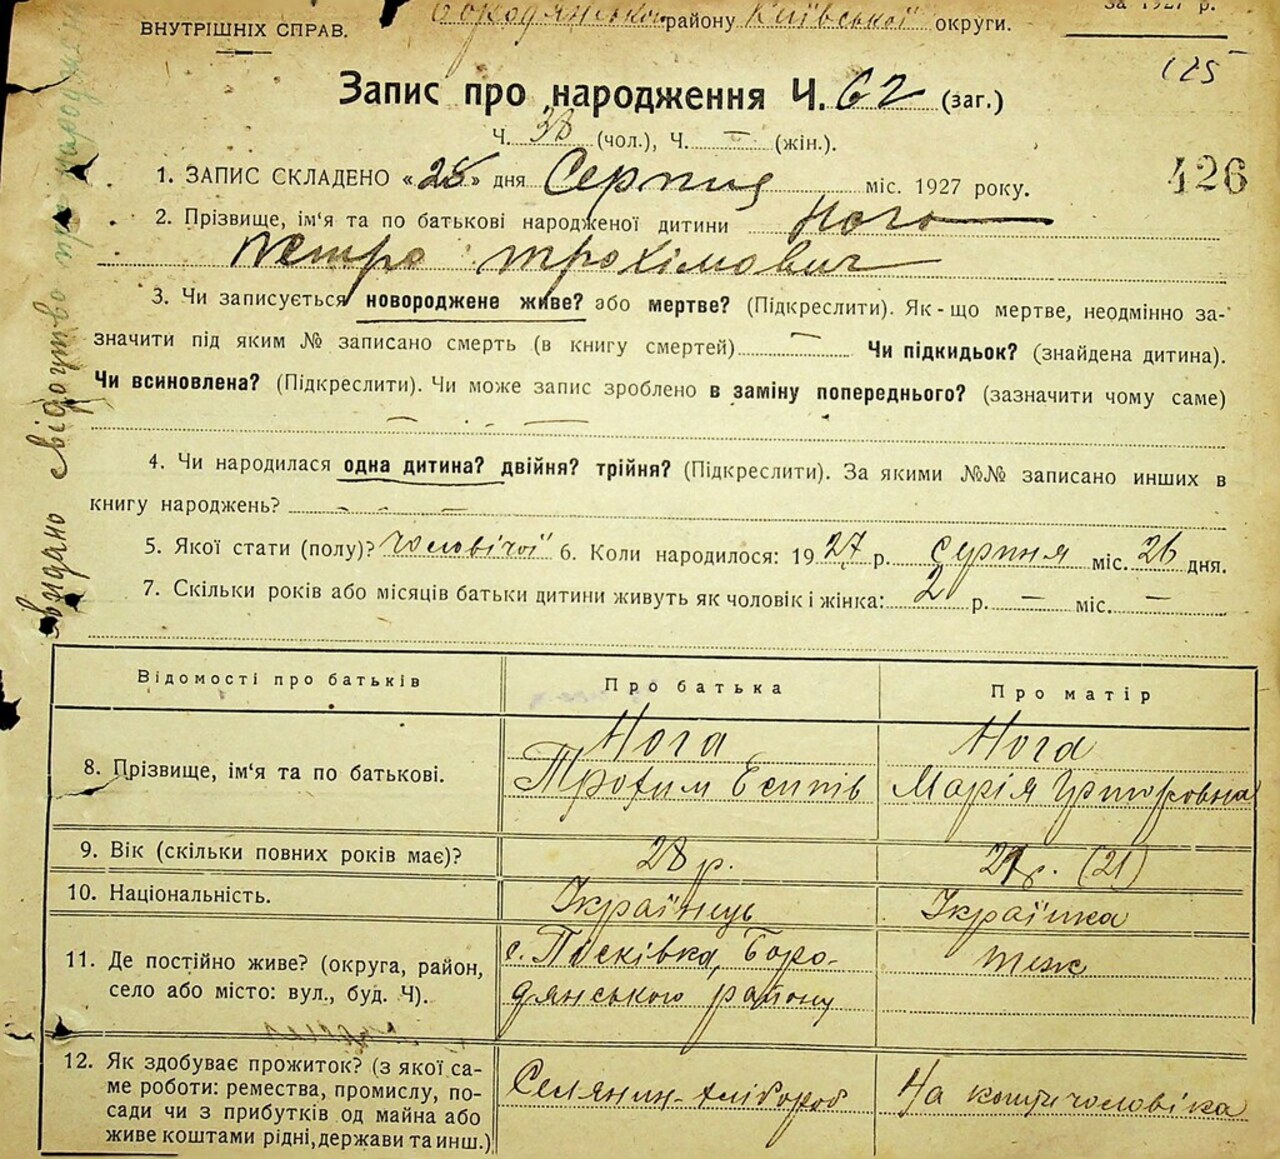 ВНУТРІШНІХ СПРАВ.
Бородянського району Київської округи.
за 1927 р.
125
Запис про народження Ч. 62 (заг.)
Ч. 38 (чол.), Ч. — (жін.).
426
1. ЗАПИС СКЛАДЕНО « » дня Серпня міс. 1927 року.
2. Прізвище, ім'я та по батькові народженої дитини Нога
Петро Трохімович
3. Чи записується новороджене живе? або мертве? (Підкреслити). Як-що мертве, неодмінно за-
значити під яким № записано смерть (в книгу смертей) — Чи підкидьок? (знайдена дитина).
Чи всиновлена? (Підкреслити). Чи може запис зроблено в заміну попереднього? (зазначити чому саме)
4. Чи народилася одна дитина? двійня? трійня? (Підкреслити). За якими №№ записано инших в
книгу народжень?
5. Якої стати (полу)? чоловічої 6. Коли народилося: 1927 р. серпня міс. 26 дня.
7. Скільки років або місяців батьки дитини живуть як чоловік і жінка: 2 р. — міс. —
Відомості про батьків Про батька Про матір
8. Прізвище, ім'я та по батькові. Нога Нога
Трофим Есипів Марія Григоровна
9. Вік (скільки повних років має)? 28 р. р. (21)
10. Національність. Українець Українка
11. Де постійно живе? (округа, район,
село або місто: вул., буд. Ч).
с. Пісківка, Боро-
дянського району
теж
12. Як здобуває прожиток? (з якої са-
ме роботи: ремества, промислу, по-
сади чи з прибутків од майна або
живе коштами рідні, держави та инш.)
Селянин-хлібороб
На кошти чоловіка
видано свідоцтво про народж